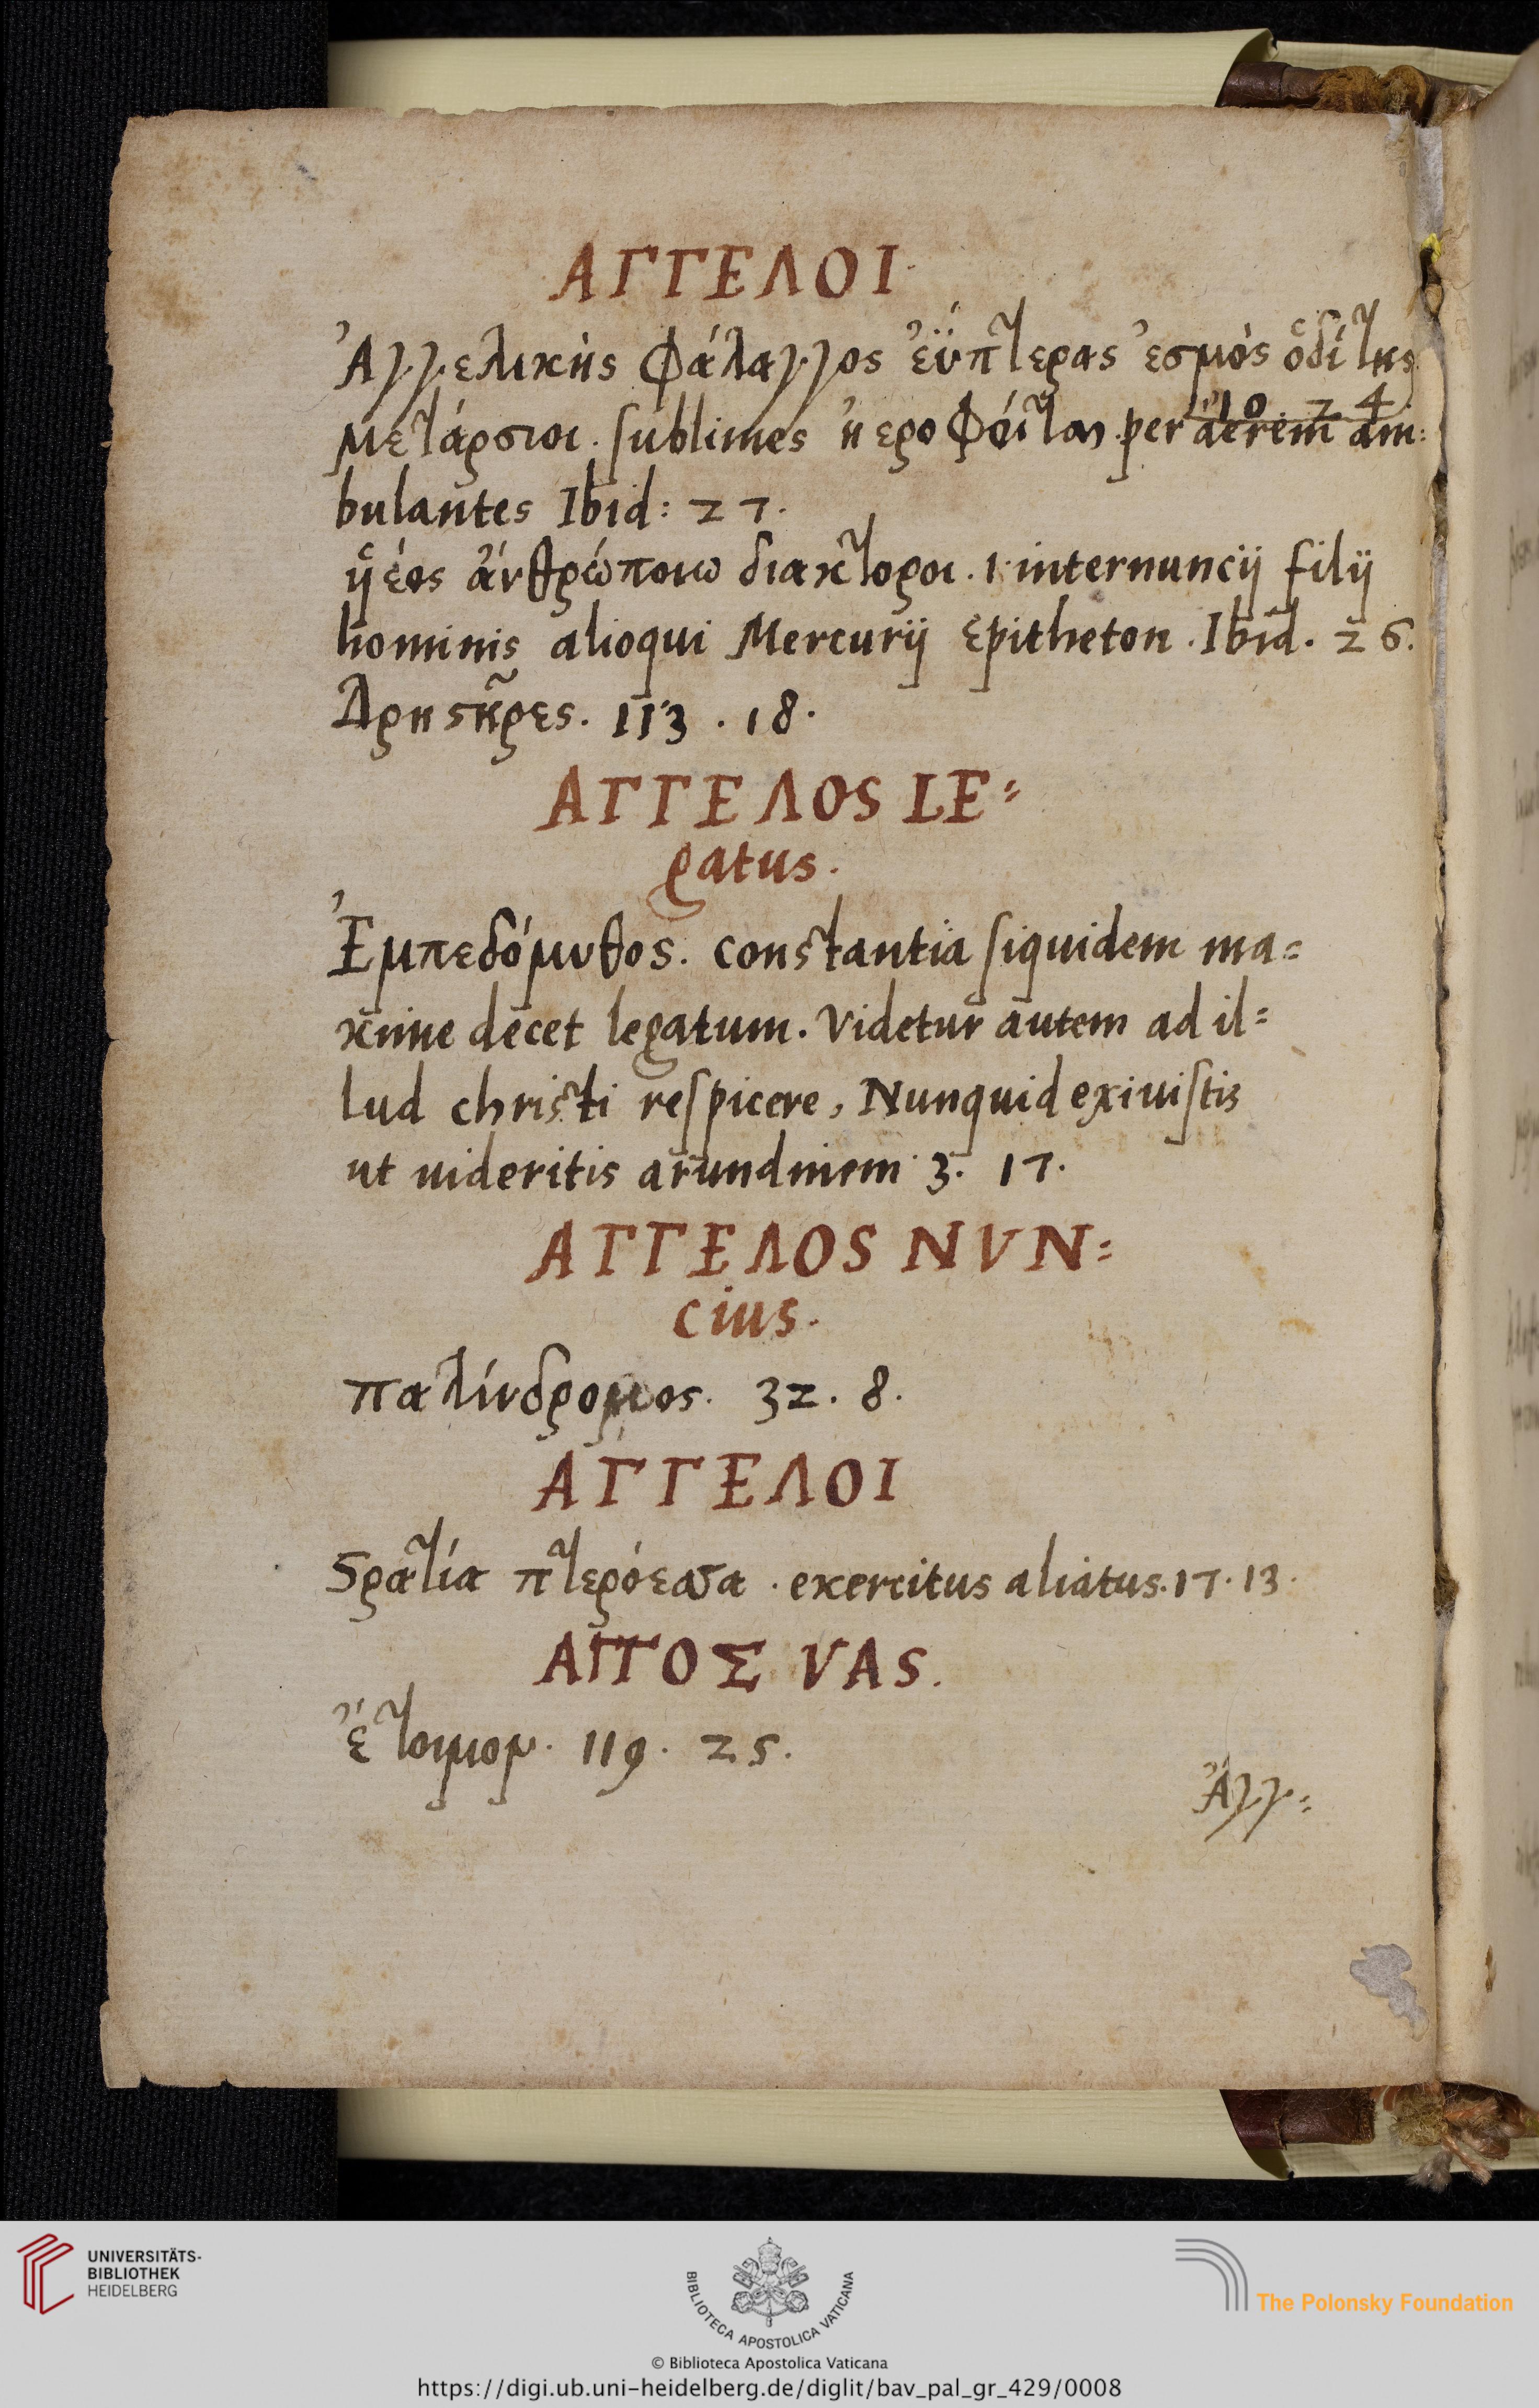 ΑΓΓΕΛΟΙ.
Ἀγγελικῆς φάλαγγος ἐϋπτερας ἐσμός ὁδίτης
10. 24
μετάρσιοι. sublimes ἠεροφοίται. per aerem am:
bulantes Ibid: 27.
ὑέος ἀνθρώποιο διακτοροι. 1. internuncij filij
hominis alioqui Mercurij Epitheton. Ibid. 26.
Δρηςῆρες. 113. 18.
ΑΓΓΕΛΟS LE=
gatus.
Ἐμπεδόμυθος. constantia siquidem ma=
xime decet legatum. Videtur autem ad il=
lud christi respicere, Nunquid exiuistis
ut uideritis arundinem 3. 17.
ΑΓΓΕΛΟS NVN=
cius.
παλίνδρομος. 32. 8.
ΑΓΓΕΛΟΙ
Ϛρατία πτερόεσσα. exercitus aliatus. 17. 13.
ΑΓΓΟΣ VAS.
ἔτοιμον. 119. 25.
Ἀγγ=
UNIVERSITÄTS-
BIBLIOTHEK
HEIDELBERG
BIBLIOTECA APOSTOLICA VATICANA
The Polonsky Foundation
© Biblioteca Apostolica Vaticana
https://digi.ub.uni-heidelberg.de/diglit/bav_pal_gr_429/0008